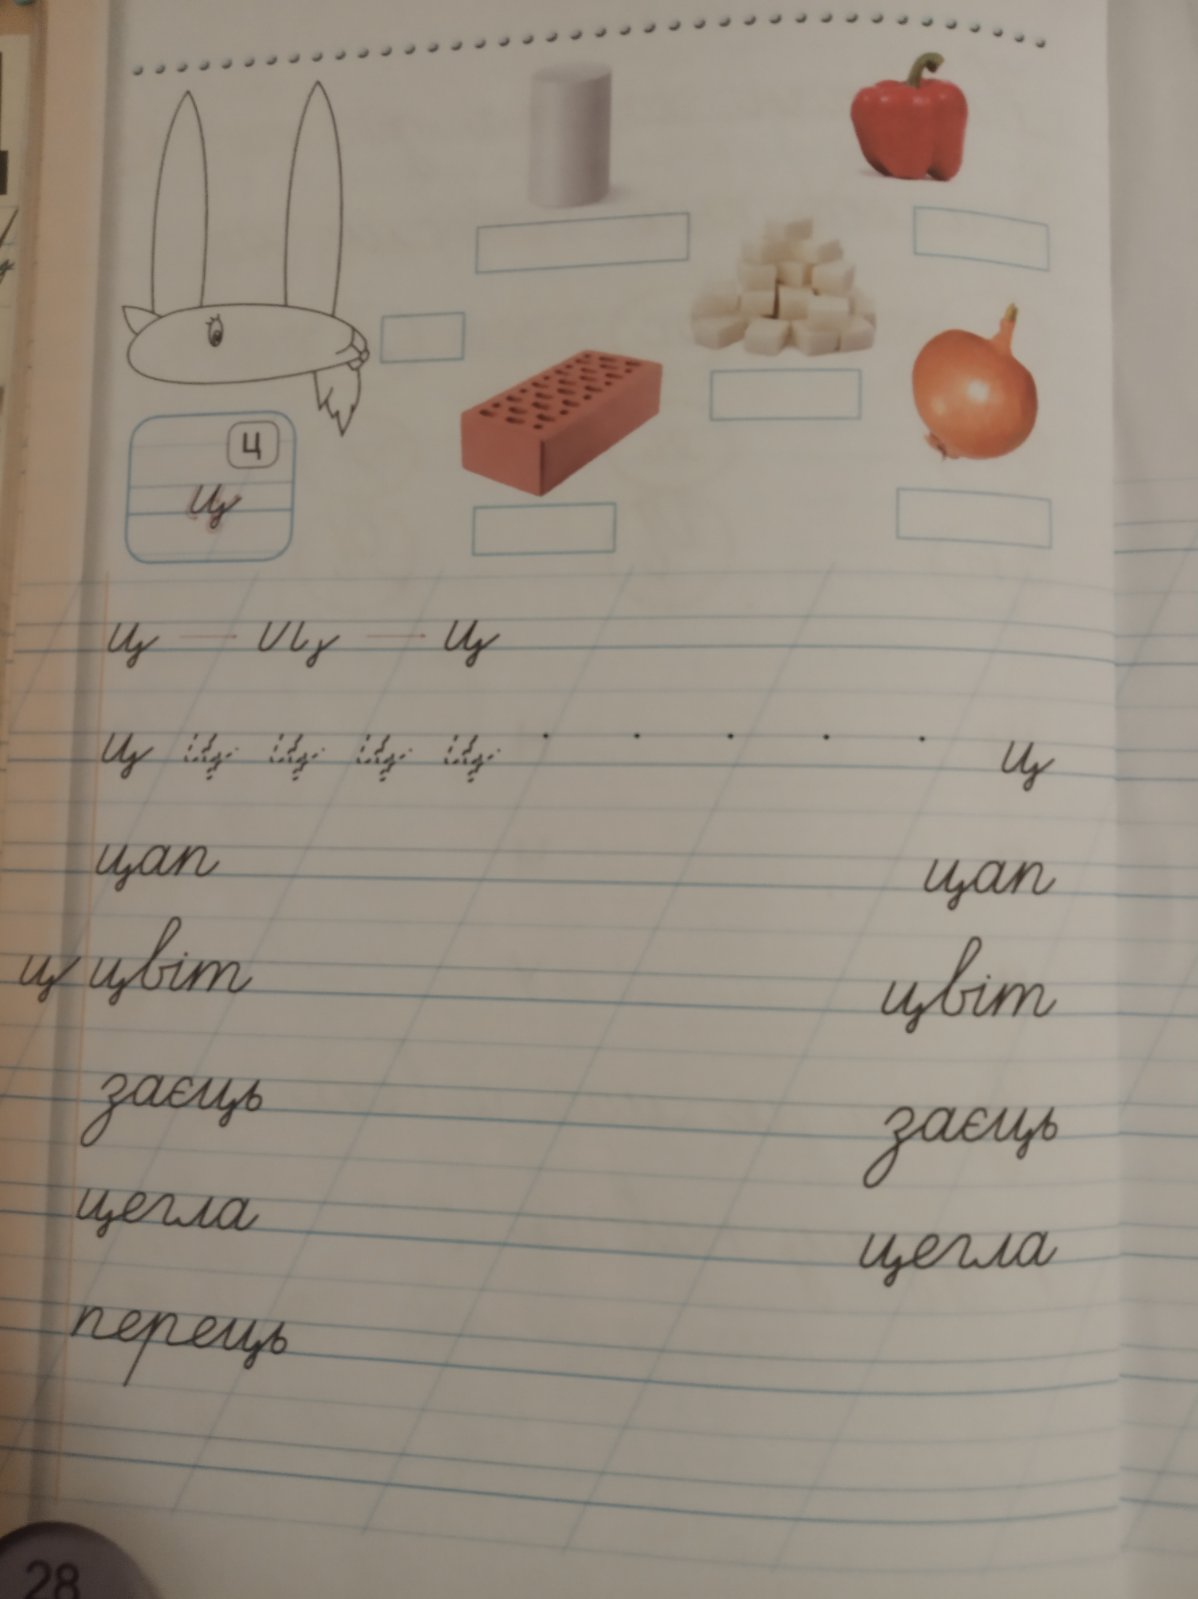 ц
ц
ц ц
ц ц ц ц ц ц
цап цап
ц цвіт цвіт
заєць заєць
цегла цегла
перець
28